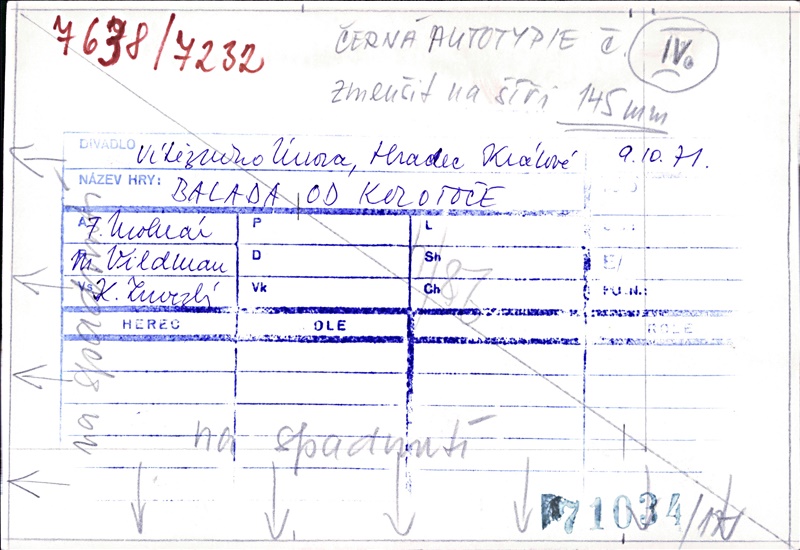 7638/7232
ČERNÁ AUTOTYPIE č. IV.
zmenšit na šíři 145 mm
DIVADLO Vítězného Února, Hradec Králové 9.10.71.
NÁZEV HRY: BALADA OD KOLOTOČE
A F. Molnár P L
M. Vildman D Sh E/
K. Zmrzlý Vk Ch PO.N.:
HEREC OLE ROLE
na spadnutí
na spadnutí
71034/171